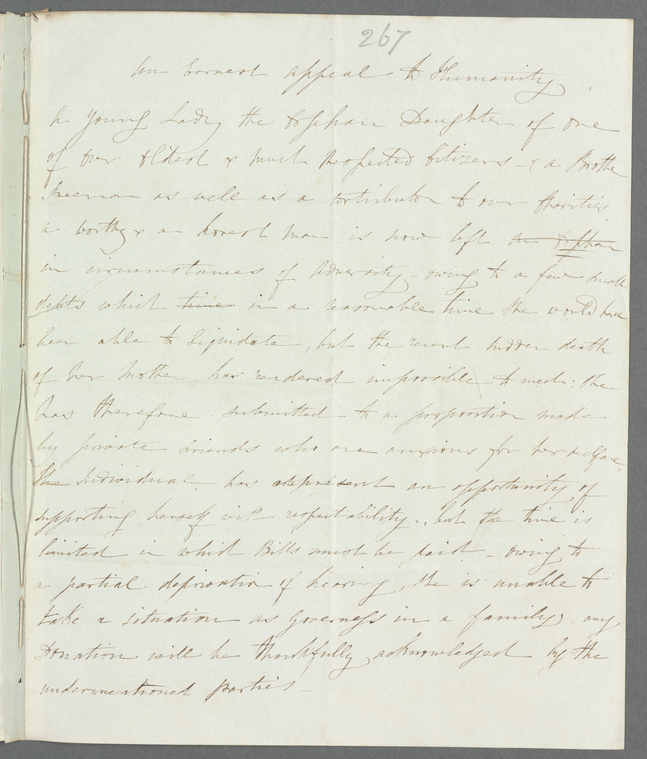 267
An Earnest appeal to Humanity
A Young Lady the Orphan Daughter of one
of our oldest & much respected Citizens - & a Brother
Freeman as well as a contributor to our Charities,
a worthy & an honest man is now left an Orphan
in circumstances of adversity - owing to a few small
debts which time in a reasonable time she would have
been able to liquidate, but the recent sudden death
of her Mother, has rendered impossible to meet: She
has therefore submitted to a proposition made
by private friends who are anxious for her welfare,
The Individual has at present an opportunity of
supporting herself with respectability, but the time is
limited in which Bills must be paid - owing to
a partial deprivation of hearing, she is unable to
take a situation as Governess in a family, any
Donation will be thankfully acknowledged by the
undermentioned parties -